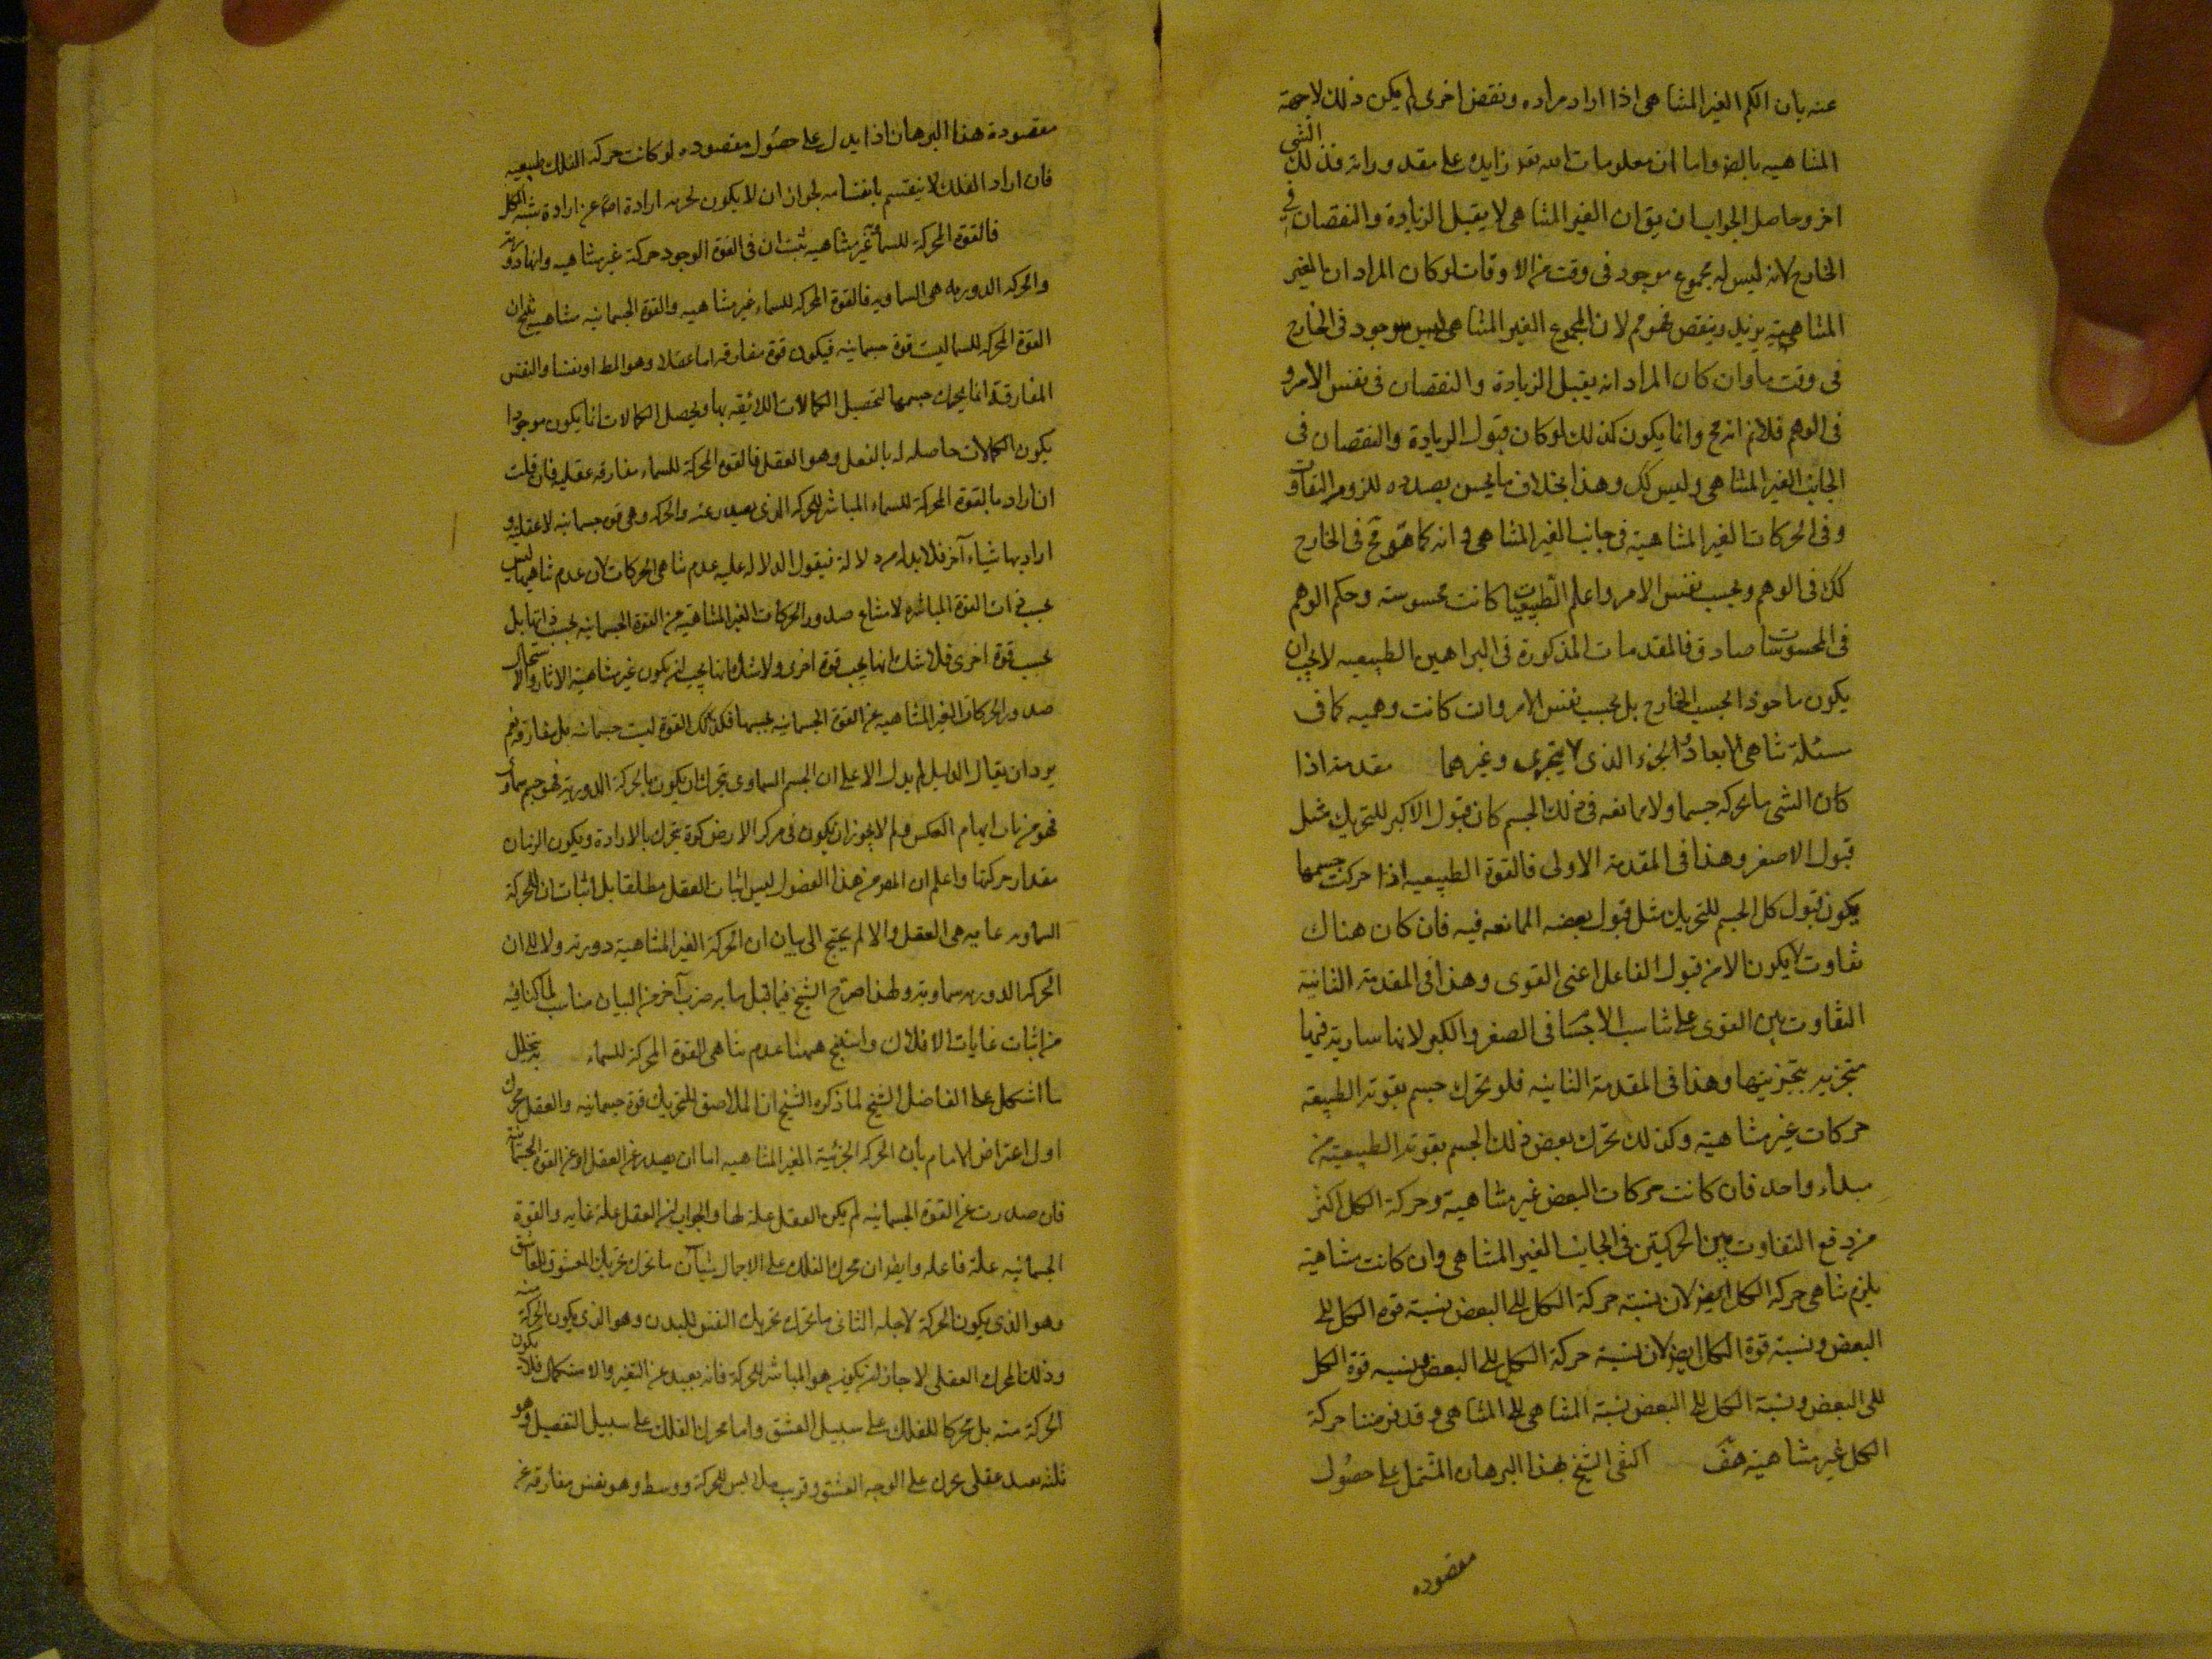 عنه بان الكم الغير المتناهى اذا ازداد مراده ونقص اخرى لم يكن ذلك لاجهة
المتناهيه بالضر واما ان معلومات الله تعد زايده على مقدوراته فذلك الشى
اخر وحاصل الجواب ان يق ان الغير المتناهى لا يقبل الزيادة والنقصان فى
الخارج لانه ليس له مجموع موجود فى وقت من الاوقات لو كان المراد ان الغير
المتناهية يزيد وينقص فهو مم لان المجموع الغير المتناهى ليس موجود فى الخارج
فى وقت ما وان كان المراد انه يقبل الزيادة والنقصان فى نفس الامر و
فى الوهم فلانم انه مح وانما يكون كذلك لو كان قبول الزيادة والنقصان فى
الجانب الغير المتناهى وليس كك وهذا بخلاف ما نحن بصدده للزوم التفاوت
وفى الحركات الغير المتناهية فى جانب الغير المتناهى وانه كما هو مح فى الخارج
كك فى الوهم وبحسب نفس الامر واعلم الطبيعيات كانت محسوسة وحكم الوهم
فى المحسوسات صادق فالمقدمات المذكورة فى البراهين الطبيعيه لا يجب ان
يكون ماخوذا بحسب الخارج بل بحسب نفس الامر وان كانت وهميه كما فى
مسئلة تناهى الابعاد والجزء الذى لا يتجزى وغيرهما مقدمة اذا
كان الشى ما يحركه جسما ولا ممانعه فى ذلك الجسم كان قبول الاكبر للتحريك مثل
قبول الاصغر وهذا فى المقدمة الاولى فالقوة الطبيعيه اذا حركت جسمها
يكون قبول كل الجسم للتحريك مثل قبول بعضه الممانعه فيه فان كان هناك
تفاوت لا يكون الا من قبول الفاعل اعنى القوى وهذا فى المقدمة الثانية
التفاوت بين القوى على تناسب الاجسام فى الصغر والكبر لانها سارية فيها
متجزيه بتجزيتها وهذا فى المقدمة الثانيه فلو تحرك جسم بقوته الطبيعة
حركات غير متناهية وكذلك تحرك بعض ذلك الجسم بقوته الطبيعية من
مبداء واحد فان كانت حركات البعض غير متناهية وحركة الكل اكثر
من دفع التفاوت بين الحركتين فى الجانب الغير المتناهى وان كانت متناهية
يلزم تناهى حركه الكل ايض لان نسبة حركة الكل الى البعض نسبة قوه الكل الى
البعض ونسبة قوة الكل ايض لان نسبة حركة الكل الى البعض ونسبه قوة الكل
الى البعض ونسبة الكل الى البعض نسبة المتناهى الى المتناهى وقد فرضنا حركة
الكل غير متناهية هف اكتفى الشيخ بهذا البرهان المشتمل على حصول
مقصوده
مقصودة هذا البرهان اذا يدل على حصول مقصوده لو كانت حركة الفلك طبيعيه
فان اراد الفلك لا ينقسم بانقسامه لجواز ان لا يكون لجزئه ارادة اصلا عن ارادة الكل
فالقوة المحركة للسماء غير متناهيه ثبت ان فى القوة الوجود حركة غير متناهيه وانها دورية
والحركه الدوريه هى السماويه فالقوة المحركه للسماء غير متناهيه والقوة الجسمانيه متناهيه ينتج ان
القوة المحركه للسما ليست قوة جسمانيه فيكون قوة مفارقه اما عقلا وهو المط او نفسا والنفس
المفارقة انما يحرك جسمها لتحصيل الكمالات اللائقه بها ويحصل الكمالات انما يكون موجودا
يكون الكمالات حاصله له بالفعل وهو العقل فالقوه المحركة للسماء مفارقه عقليه فان قلت
ان اراد بالقوة المحركة للسماء المباشر للحركه الذى يصدر عنه والحركه وهى قوه جسمانيه لا عقلية و
اراد بها شياء آخر فلا بد له من دلالة فيقول الدلاله عليه عدم تناهى الحركات لان عدم تناهيها ليس
بحسب ذات القوة المباشره لامتناع صدور الحركات الغير المتناهيه من القوة الجسمانيه بحسب ذاتها بل
بحسب قوة اخرى فلا شك انها يجب قوة اخرى ولا شك انها يجب ان يكون غير متناهية الاثار والا استحال
صدور الحركات الغير المتناهيه عن القوة الجسمانيه بحسبها فكذلك القوة ليست جسمانيه بل مفارقه نعم
يرد ان يقال الدليل لم يدل الا على ان الجسم السماوى يتحرك ان يكون بالحركة الدورية فهو جسم سماوى
فهو من باب ايهام العكس فلم لا يجوز ان يكون فى مركز الارض كوة يتحرك بالارادة ويكون الزمان
مقدار حركتها واعلم ان المص من هذا الفصول ليس اثبات العقل مطلقا بل اثبات ان للحركة
السماويه غايه هى العقل والا لم يحتج الى بيان ان الحركة الغير المتناهية دورية ولا الى ان
الحركه الدوريه سماوية ولهذا صرح الشيخ فيما قبل بانه ضرب آخر من البيان مناسب لما كنا فيه
من اثبات غايات الافلاك واستنتج ههنا عدم تناهى القوة المحركة للسماء به ينحل
ما اشكل على الفاضل الشيخ لما ذكره الشيخ ان الملاصق للتحريك قوة جسمانيه والعقل محرك
اول اعتراض الامام بان الحركه الجزئية الغير المتناهيه اما ان يصدر عن العقل او عن القوة الجسمانية
فان صدرت عن القوة الجسمانيه لم يكن العقل علة لها والجواب ان العقل علة غايه والقوة
الجسمانيه علة فاعله وايض ان محرك الفلك على الاجمال شيئان ما يحرك تحريك المعشوق للعاشق
وهو الذى يكون الحركة لاجله الثانى ما يحرك تحريك النفس للبدن وهو الذى يكون الحركة منه
وذلك المحرك العقلى لا جائز ان يكون هو المباشر للحركة فانه بعيد عن التغير والاستكمال فلا يكون
الحركة منه بل محركا للفلك على سبيل العشق واما محرك الفلك على سبيل التفصيل وهو
ثلثه بعيد عقلى يحرك على الوجه العشق وقريب ملابس للحركة ووسط وهو نفس مفارقه عن